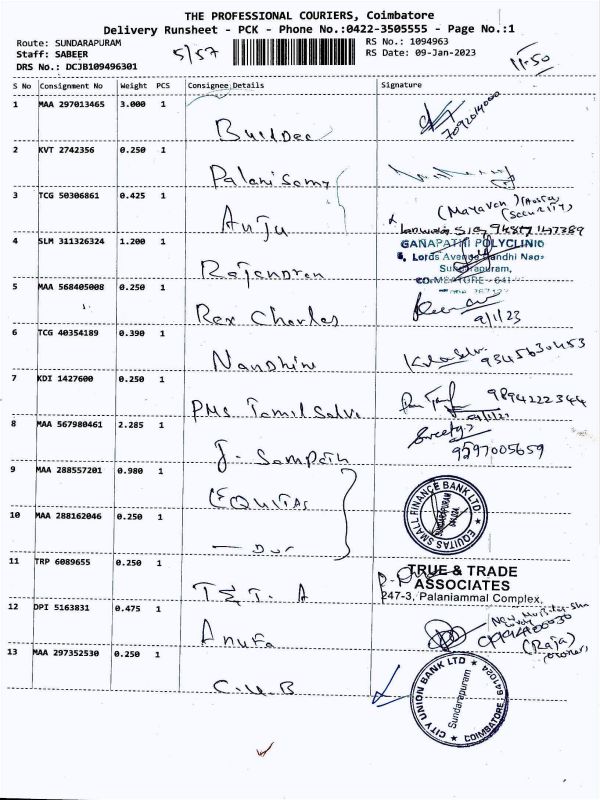 THE PROFESSIONAL COURIERS, Coimbatore
Delivery Runsheet - PCK - Phone No.:0422-3505555 - Page No.:1
Route: SUNDARAPURAM 5/57 RS No.: 1094963 11-50
Staff: SABEER RS Date: 09-Jan-2023
DRS No.: DCJB109496301
S No Consignment No Weight PCS Consignee Details Signature
1 MAA 297013465 3.000 1
7092014000
2 KVT 2742356 0.250 1
Palanisamy
3 TCG 50306861 0.425 1 (Mayavan)
Anju (Security)
4 SLM 311326324 1.200 1 GANAPATHI POLYCLINIC
Rajendran 5, Lords Avenue Gandhi Nagar
Sundarapuram,
COIMBATORE - 641
5 MAA 568405008 0.250 1
Rex Charles 9/1/23
6 TCG 40354189 0.390 1
Nandhini 9345630453
7 KDI 1427600 0.250 1 9894222344
PMS Tamil Selvi
8 MAA 567980461 2.285 1
J. Sampath 9597005659
9 MAA 288557201 0.980 1 EQUITAS SMALL FINANCE BANK LTD.
EQUITAS SUNDARAPURAM
10 MAA 288162046 0.250 1
11 TRP 6089655 0.250 1 TRUE & TRADE
T & T. A ASSOCIATES
247-3, Palaniammal Complex,
12 DPI 5163831 0.475 1
(Raja)
13 MAA 297352530 0.250 1 CITY UNION BANK LTD
C.U.B Sundarapuram
COIMBATORE 641024